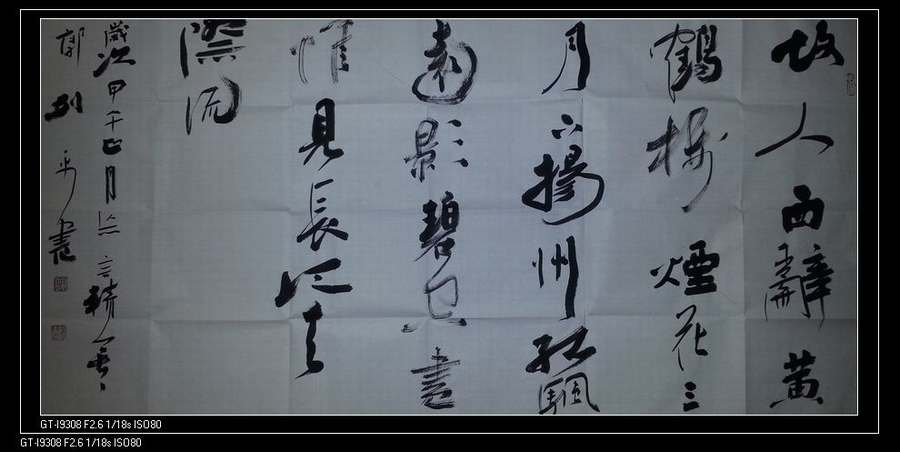 故人西辭黃
鶴樓煙花三
月下揚州孤颿
遠影碧空盡
惟見長江天
際流
歲次甲午七月
郭 平書
GT-I9308 F2.6 1/18s ISO80
GT-I9308 F2.6 1/18s ISO80